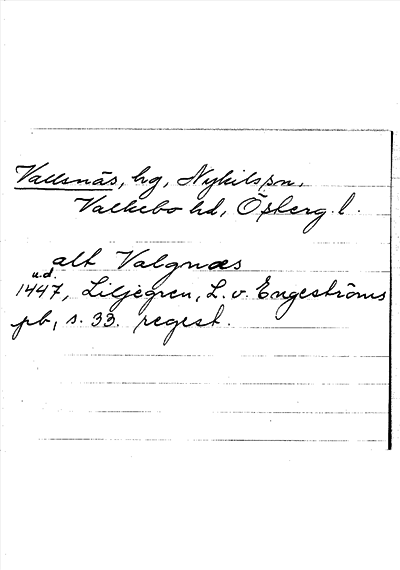 Vallsnäs, hg, Nykils sn,
Valkebo hd, Österg. l.
alt Valgnæs
u.d.
1447, Liljegren, L. v. Engeströms
pb, s. 33. regest.